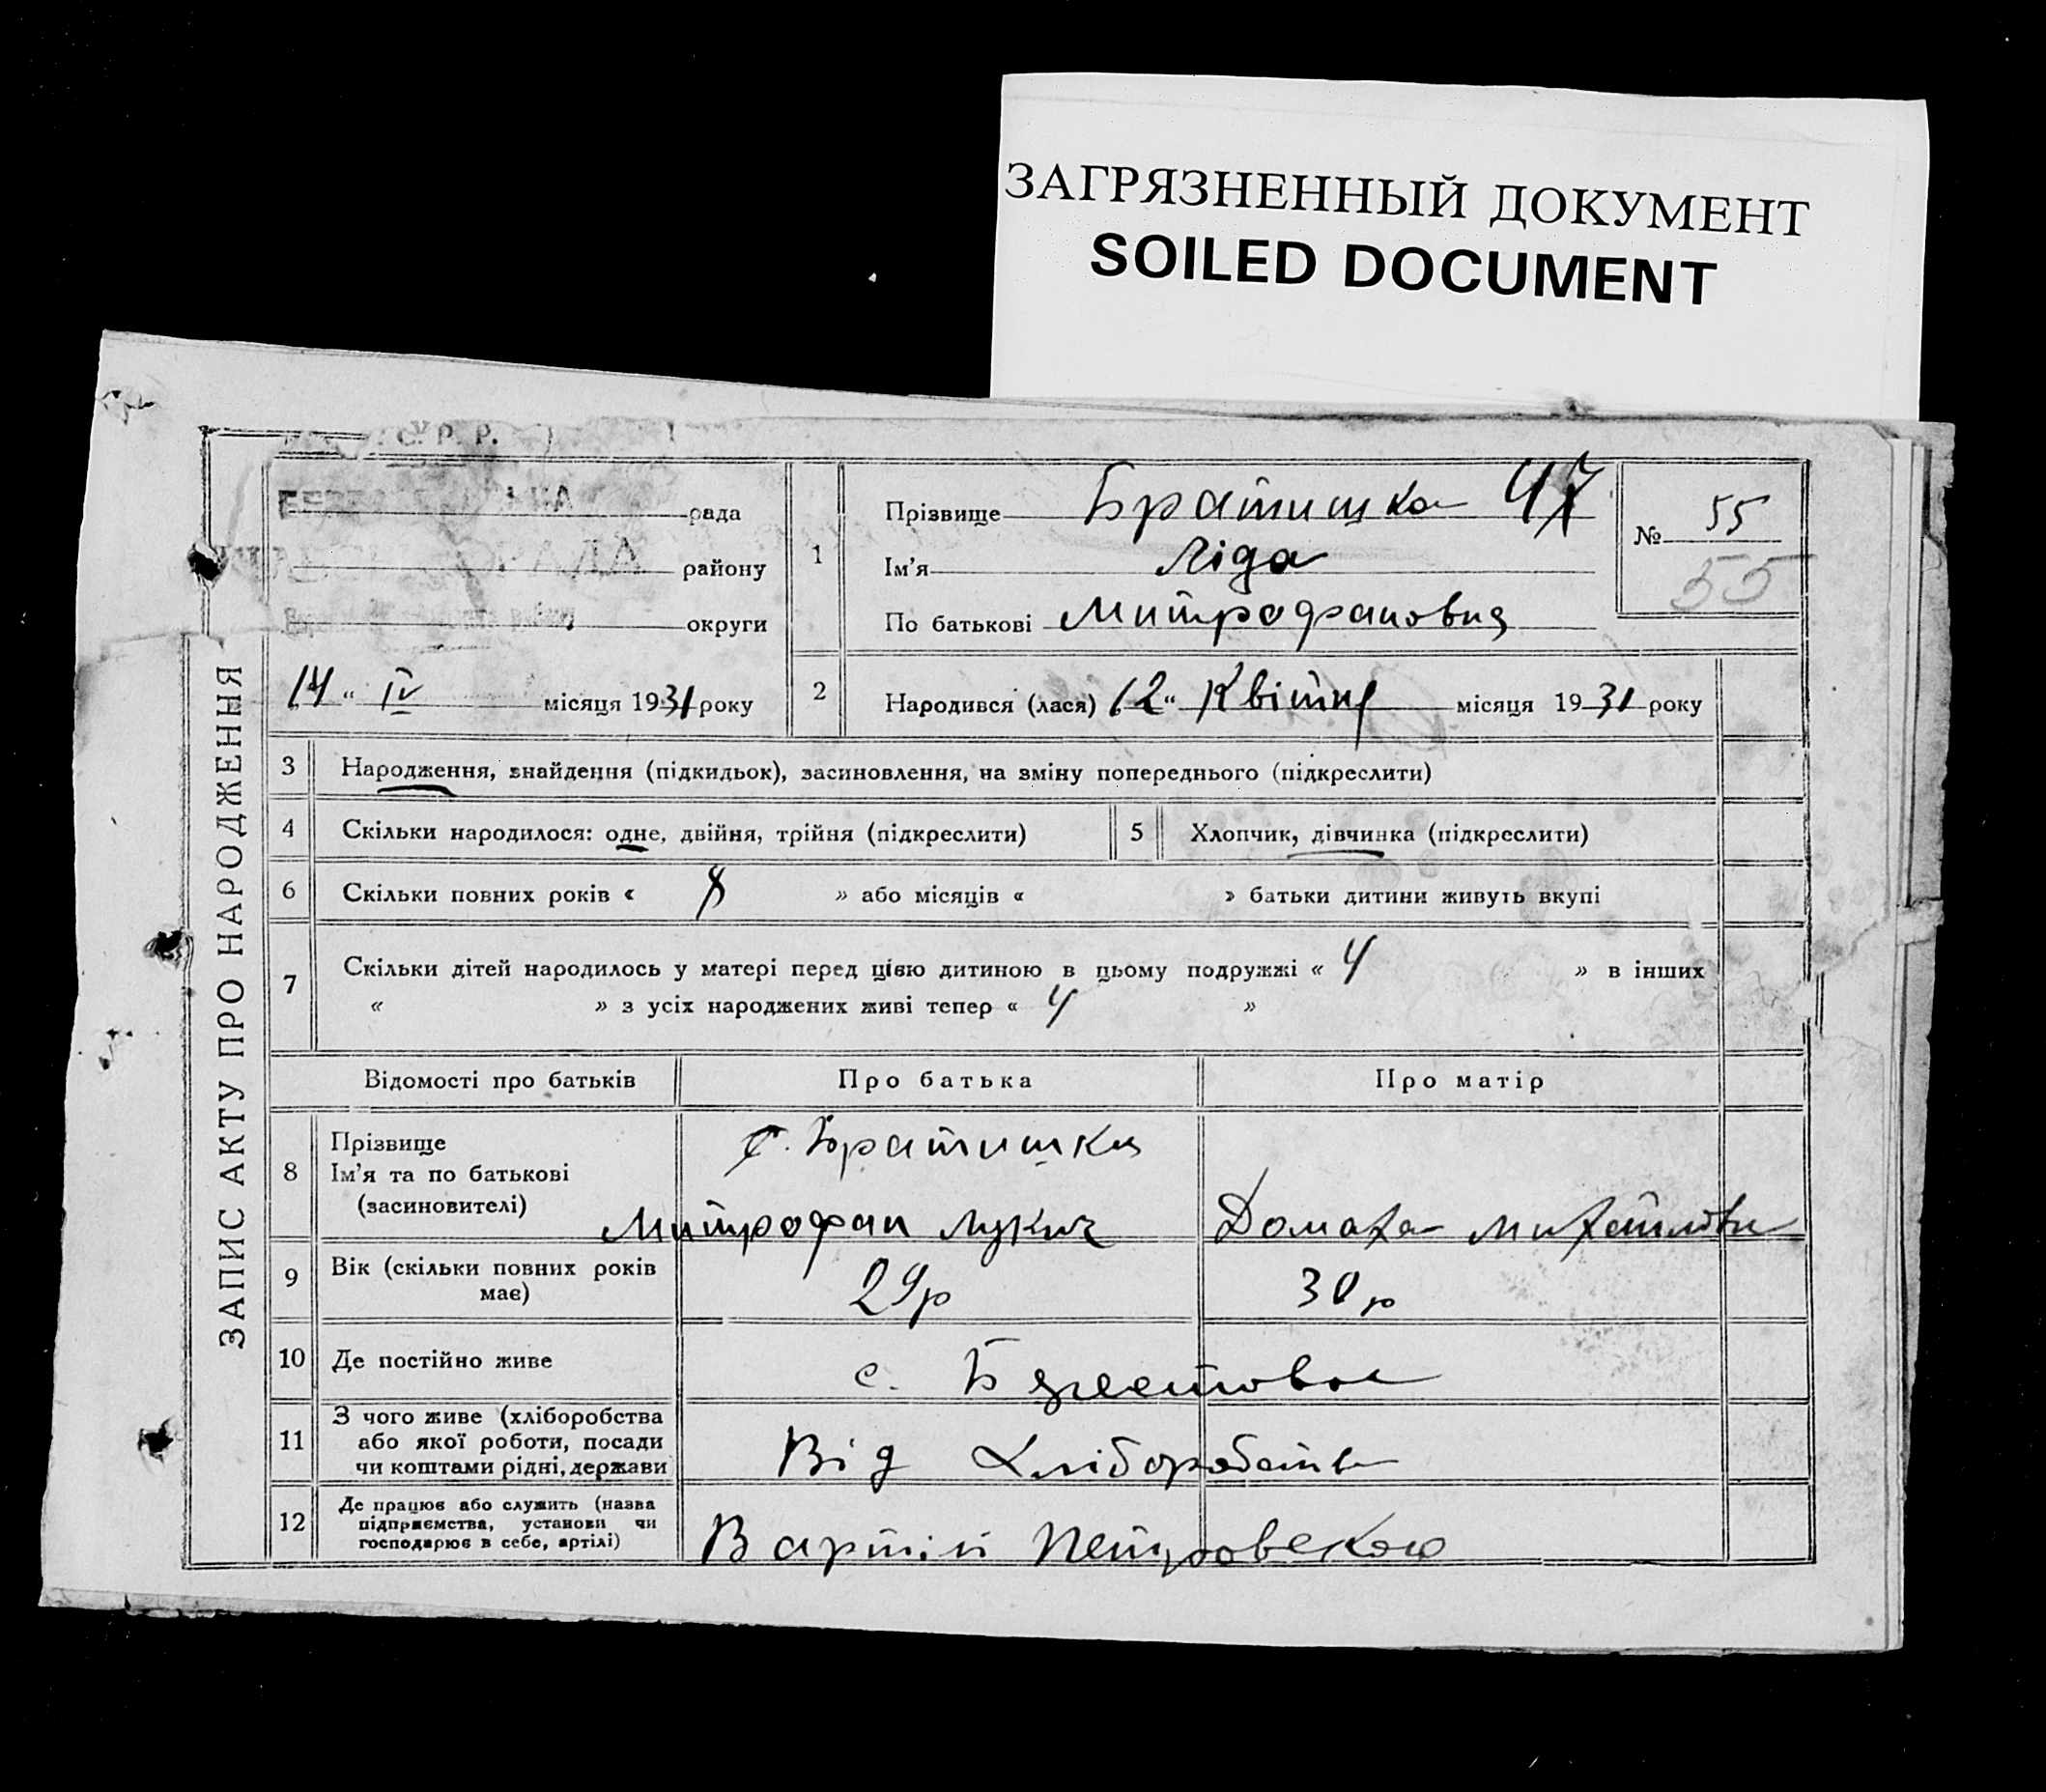 ЗАГРЯЗНЕННЫЙ ДОКУМЕНТ
SOILED DOCUMENT
ЗАПИС АКТУ ПРО НАРОДЖЕННЯ
С. Р. Р.
рада
РАДА
району
округи
14 " IV місяця 1931 року
1
Прізвище Братишка 47
Ім'я Ліда
По батькові Митрофановна
№ 55
55
2 Народився (лася) 12 " Квітня місяця 1931 року
3 Народження, знайдення (підкидьок), засиновлення, на зміну попереднього (підкреслити)
4 Скільки народилося: одне, двійня, трійня (підкреслити) 5 Хлопчик, дівчинка (підкреслити)
6 Скільки повних років « 8 » або місяців « » батьки дитини живуть вкупі
7 Скільки дітей народилось у матері перед цією дитиною в цьому подружжі « 4 » в інших
« » з усіх народжених живі тепер « 4 »
Відомості про батьків Про батька Про матір
8 Прізвище
Ім'я та по батькові
(засиновителі)
Братишка
Митрофан Лукич Домаха
9 Вік (скільки повних років
має)
29р 30р
10 Де постійно живе с.
11 З чого живе (хліборобства
або якої роботи, посади
чи коштами рідні, держави
Від Хліборобства
12 Де працює або служить (назва
підприємства, установи чи
господарює в себе, артілі)
В артілі Петровского